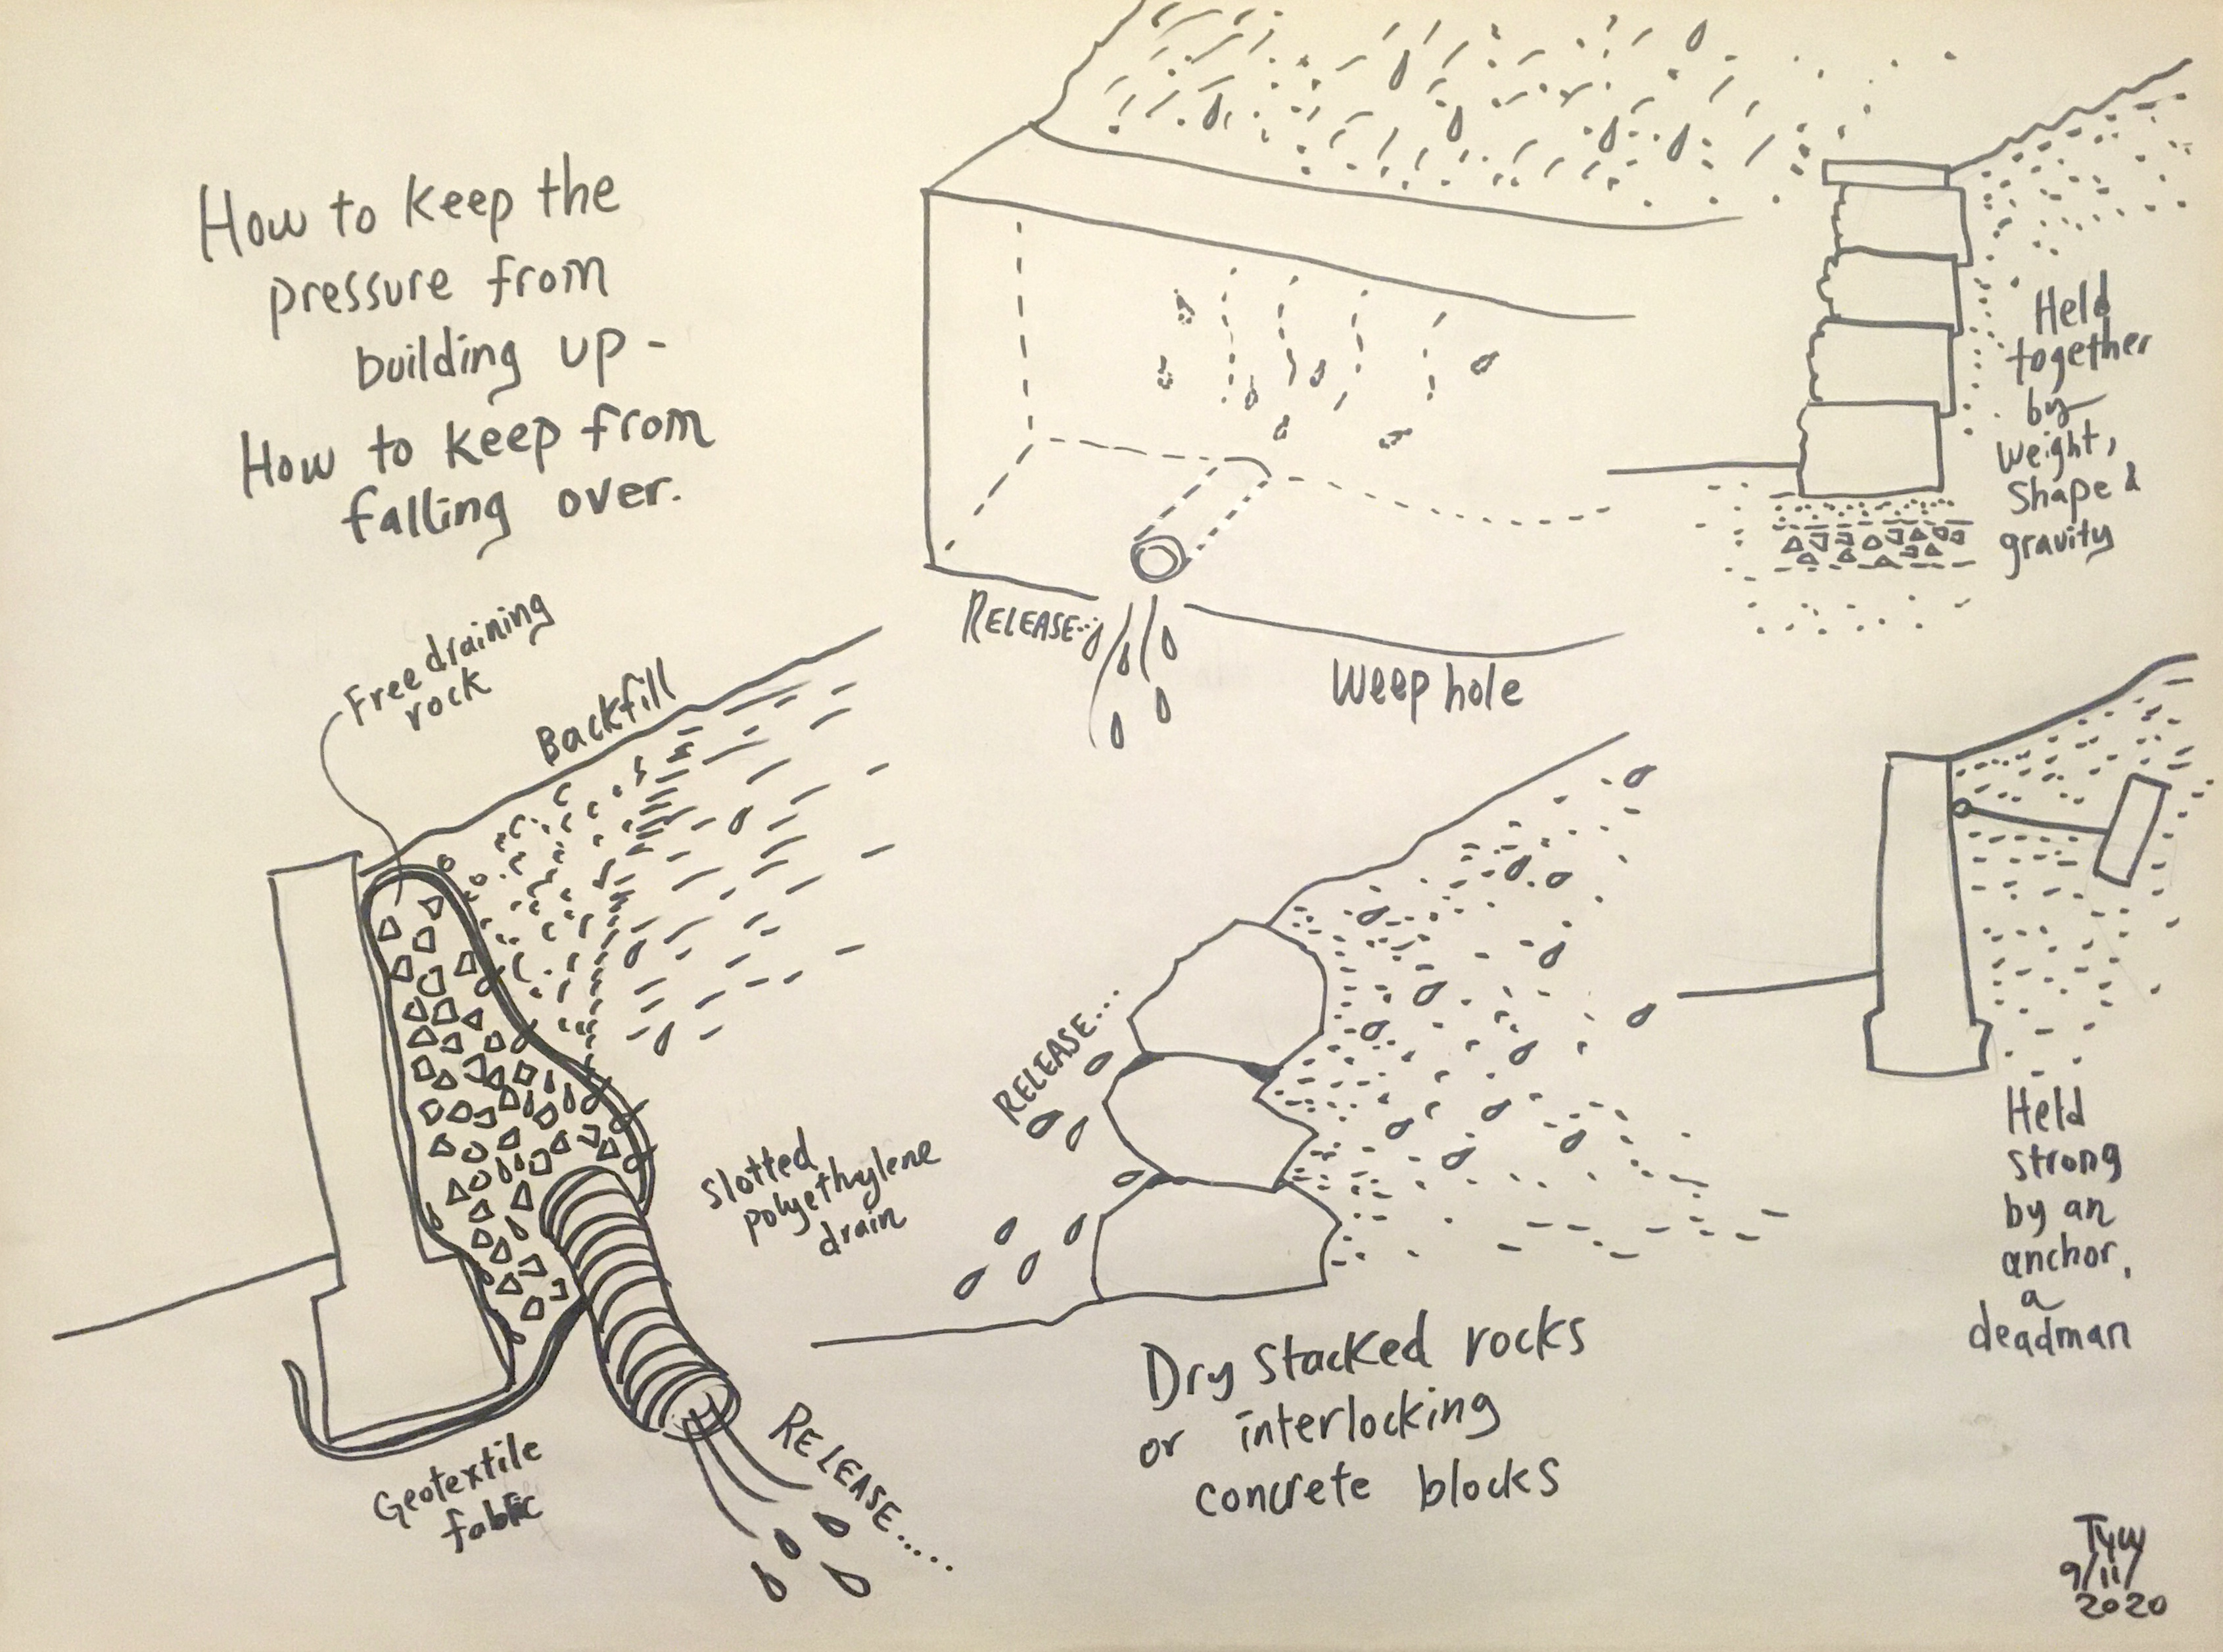 How to keep the
pressure from
building up -
How to keep from
falling over.
Held
together
by
weight,
shape &
gravity
RELEASE...
Weep hole
Free draining
rock
Backfill
Slotted
polyethylene
drain
Geotextile
fabric
RELEASE.....
RELEASE...
Dry stacked rocks
or interlocking
concrete blocks
Held
strong
by an
anchor,
a
deadman
Tyw
9/11/
2020